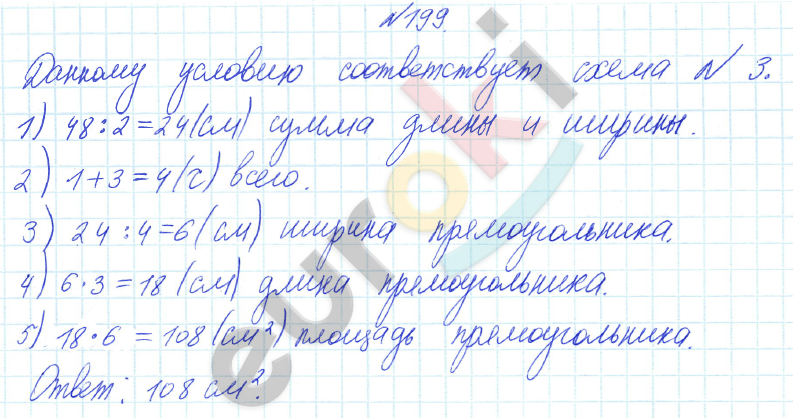 №199.
Данному условию соответствует схема № 3.
1) 48:2=24(см) сумма длины и ширины.
2) 1+3=4(ч) всего.
3) 24:4=6(см) ширина прямоугольника.
4) 6·3=18(см) длина прямоугольника.
5) 18·6=108(см²) площадь прямоугольника.
Ответ: 108 см².
euroki